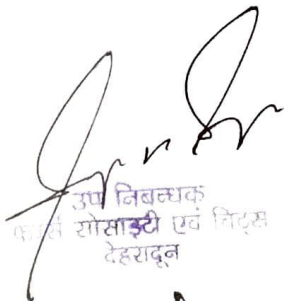 उप निबन्धक
फर्म्स सोसाइटी एवं चिट्स
देहरादून